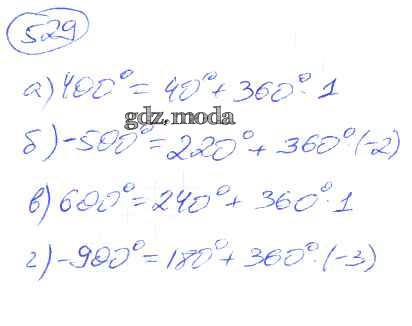 529
а) 400° = 40° + 360° · 1
gdz.moda
б) -500° = 220° + 360° · (-2)
в) 600° = 240° + 360° · 1
г) -900° = 180° + 360° · (-3)